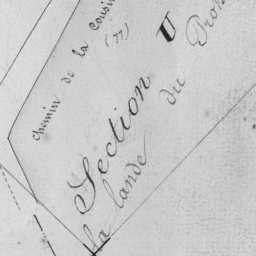 chemin de la cousin
(77)
Section U
la lande du Dron